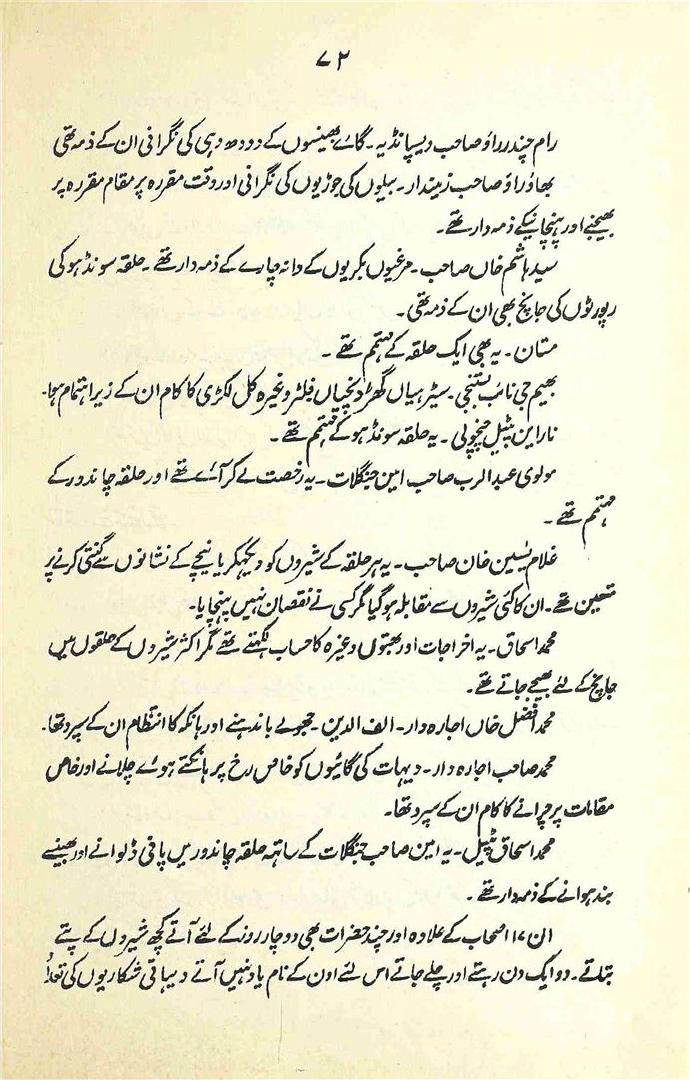 ۷۳
رام چندر راؤ صاحب دیسپانڈیہ۔ گائے بھینسوں کے دودھ دہی کی نگرانی ان کے ذمہ تھی
بھاؤ راؤ صاحب زمیندار۔ بیلوں کی جوڑیوں کی نگرانی اور وقت مقررہ پر مقام مقررہ پر
بھیجنے اور پہنچانیکے ذمہ دار تھے۔
سید ہاشم خاں صاحب۔ مرغیوں بکریوں کے دانہ چارے کے ذمہ دار تھے۔ حلقہ سونڈہو کی
رپورٹوں کی جانچ بھی ان کے ذمہ تھی۔
مستان۔ یہ بھی ایک حلقہ کے مہتمم تھے۔
بھیم جی نائب۔ سیڑہیاں گھڑونچیاں فلٹر وغیرہ کل لکڑی کا کام ان کے زیر اہتمام ہوا۔
ناراین پٹیل چنچولی۔ یہ حلقہ سونڈہو کے مہتمم تھے۔
مولوی عبدالرب صاحب امین جنگلات۔ یہ رخصت لے کر آئے تھے اور حلقہ چاندور کے
مہتمم تھے۔
غلام یٰسین خان صاحب۔ یہ ہر حلقہ کے شیروں کو دیکہکر یا پنجے کے نشانوں سے گنتی کرنے پر
متعین تھے۔ ان کا کئی شیروں سے مقابلہ ہوگیا مگر کسی نے نقصان نہیں پہنچایا۔
محمد اسحاق۔ یہ اخراجات اور بھتوں وغیرہ کا حساب لکھتے تھے مگر اکثر شیروں کے حلقوں میں
جانچ کے لئے بھیجے جاتے تھے۔
محمد افضل خاں اجارہ دار۔ الف الدین۔ جھولے باندہنے اور ہانکہ کا انتظام ان کے سپرد تھا۔
محمد صاحب اجارہ دار۔ دیہات کی گائیوں کو خاص رخ پر ہانکتے ہوئے چلانے اور خاص
مقامات پر چرانے کا کام ان کے سپرد تھا۔
محمد اسحاق پٹیل۔ یہ امین صاحب جنگلات کے ساتھ حلقہ چاندور میں پانی ڈلوانے اور بھینسے
بندہوانے کے ذمہ دار تھے۔
ان ۱۷ اصحاب کے علاوہ اور چند حضرات بھی دو چار روز کے لئے آتے کچھ شیروں کے پتے
بتاتے۔ دو ایک دن رہتے اور چلے جاتے اس لئے اون کے نام یاد نہیں آتے دیہاتی شکاریوں کی تعداد